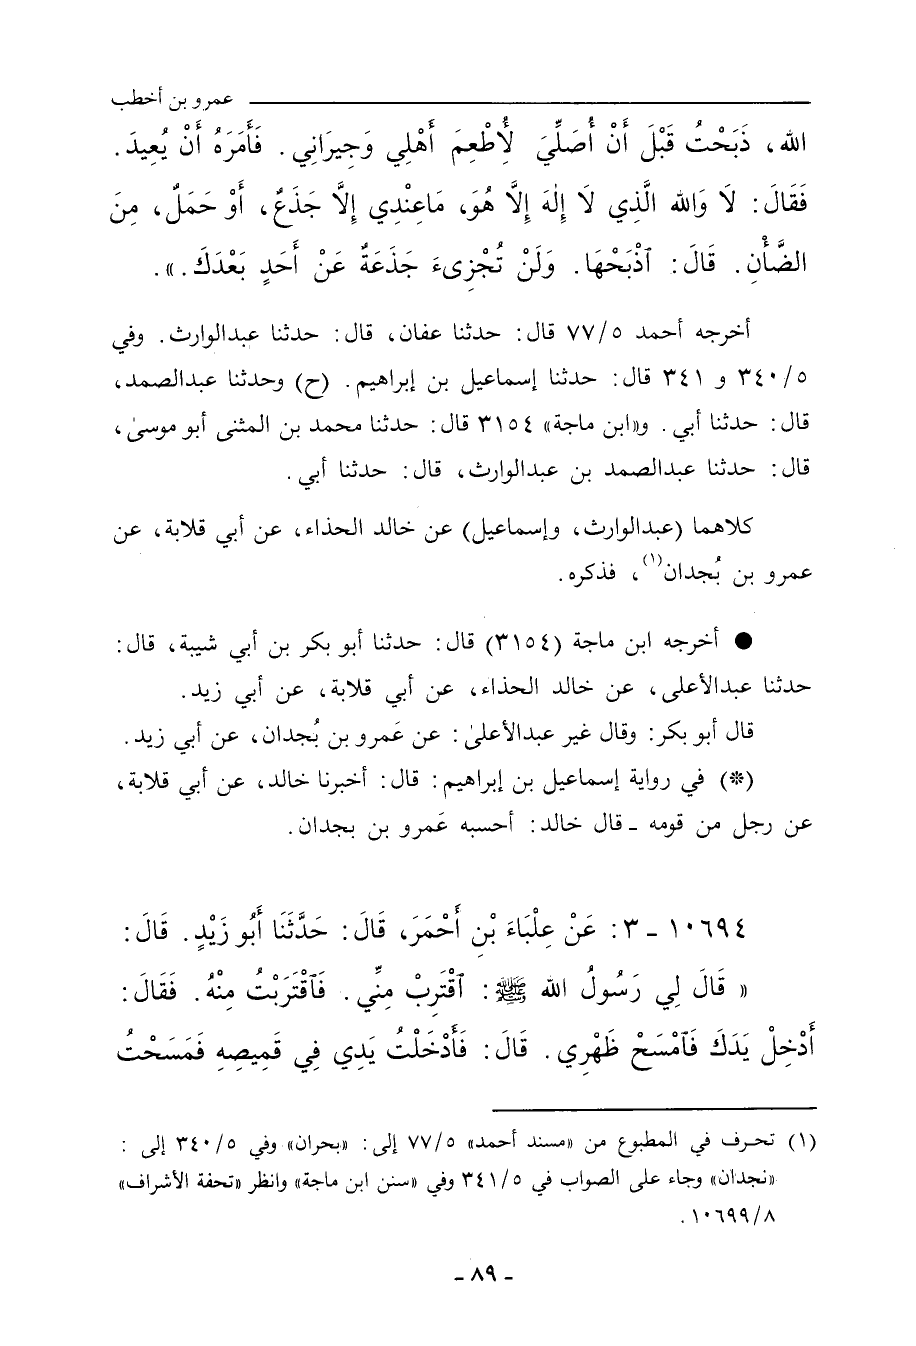 عمرو بن أخطب
الله، ذَبَحْتُ قَبْلَ أَنْ أُصَلِّيَ لِأُطْعِمَ أَهْلِي وَجِيرَانِي. فَأَمَرَهُ أَنْ يُعِيدَ.
فَقَالَ: لَا وَالله الَّذِي لَا إِلٰهَ إِلَّا هُوَ، مَاعِنْدِي إِلَّا جَذَعٌ، أَوْ حَمَلٌ، مِنَ
الضَّأْنِ. قَالَ: ٱذْبَحْهَا. وَلَنْ تُجْزِىءَ جَذَعَةٌ عَنْ أَحَدٍ بَعْدَكَ.».
أخرجه أحمد ٧٧/٥ قال: حدثنا عفان، قال: حدثنا عبدالوارث. وفي
٣٤٠/٥ و ٣٤١ قال: حدثنا إسماعيل بن إبراهيم. (ح) وحدثنا عبدالصمد،
قال: حدثنا أبي. و«ابن ماجة» ٣١٥٤ قال: حدثنا محمد بن المثنى أبو موسىٰ،
قال: حدثنا عبدالصمد بن عبدالوارث، قال: حدثنا أبي.
كلاهما (عبدالوارث، وإسماعيل) عن خالد الحذاء، عن أبي قلابة، عن
عمرو بن بُجدان(١)، فذكره.
● أخرجه ابن ماجة (٣١٥٤) قال: حدثنا أبو بكر بن أبي شيبة، قال:
حدثنا عبدالأعلى، عن خالد الحذاء، عن أبي قلابة، عن أبي زيد.
قال أبو بكر: وقال غير عبدالأعلىٰ: عن عَمرو بن بُجدان، عن أبي زيد.
(*) في رواية إسماعيل بن إبراهيم: قال: أخبرنا خالد، عن أبي قلابة،
عن رجل من قومه - قال خالد: أحسبه عَمرو بن بجدان.
١٠٦٩٤ - ٣: عَنْ عِلْبَاءَ بْنِ أَحْمَرَ، قَالَ: حَدَّثَنَا أَبُو زَيْدٍ. قَالَ:
« قَالَ لِي رَسُولُ الله ﷺ: ٱقْتَرِبْ مِنِّي. فَٱقْتَرَبْتُ مِنْهُ. فَقَالَ:
أَدْخِلْ يَدَكَ فَٱمْسَحْ ظَهْرِي. قَالَ: فَأَدْخَلْتُ يَدِي فِي قَمِيصِهِ فَمَسَحْتُ
(١) تحرف في المطبوع من «مسند أحمد» ٧٧/٥ إلى: «بحران» وفي ٣٤٠/٥ إلى :
«نجدان» وجاء على الصواب في ٣٤١/٥ وفي «سنن ابن ماجة» وانظر «تحفة الأشراف»
١٠٦٩٩/٨.
- ٨٩ -